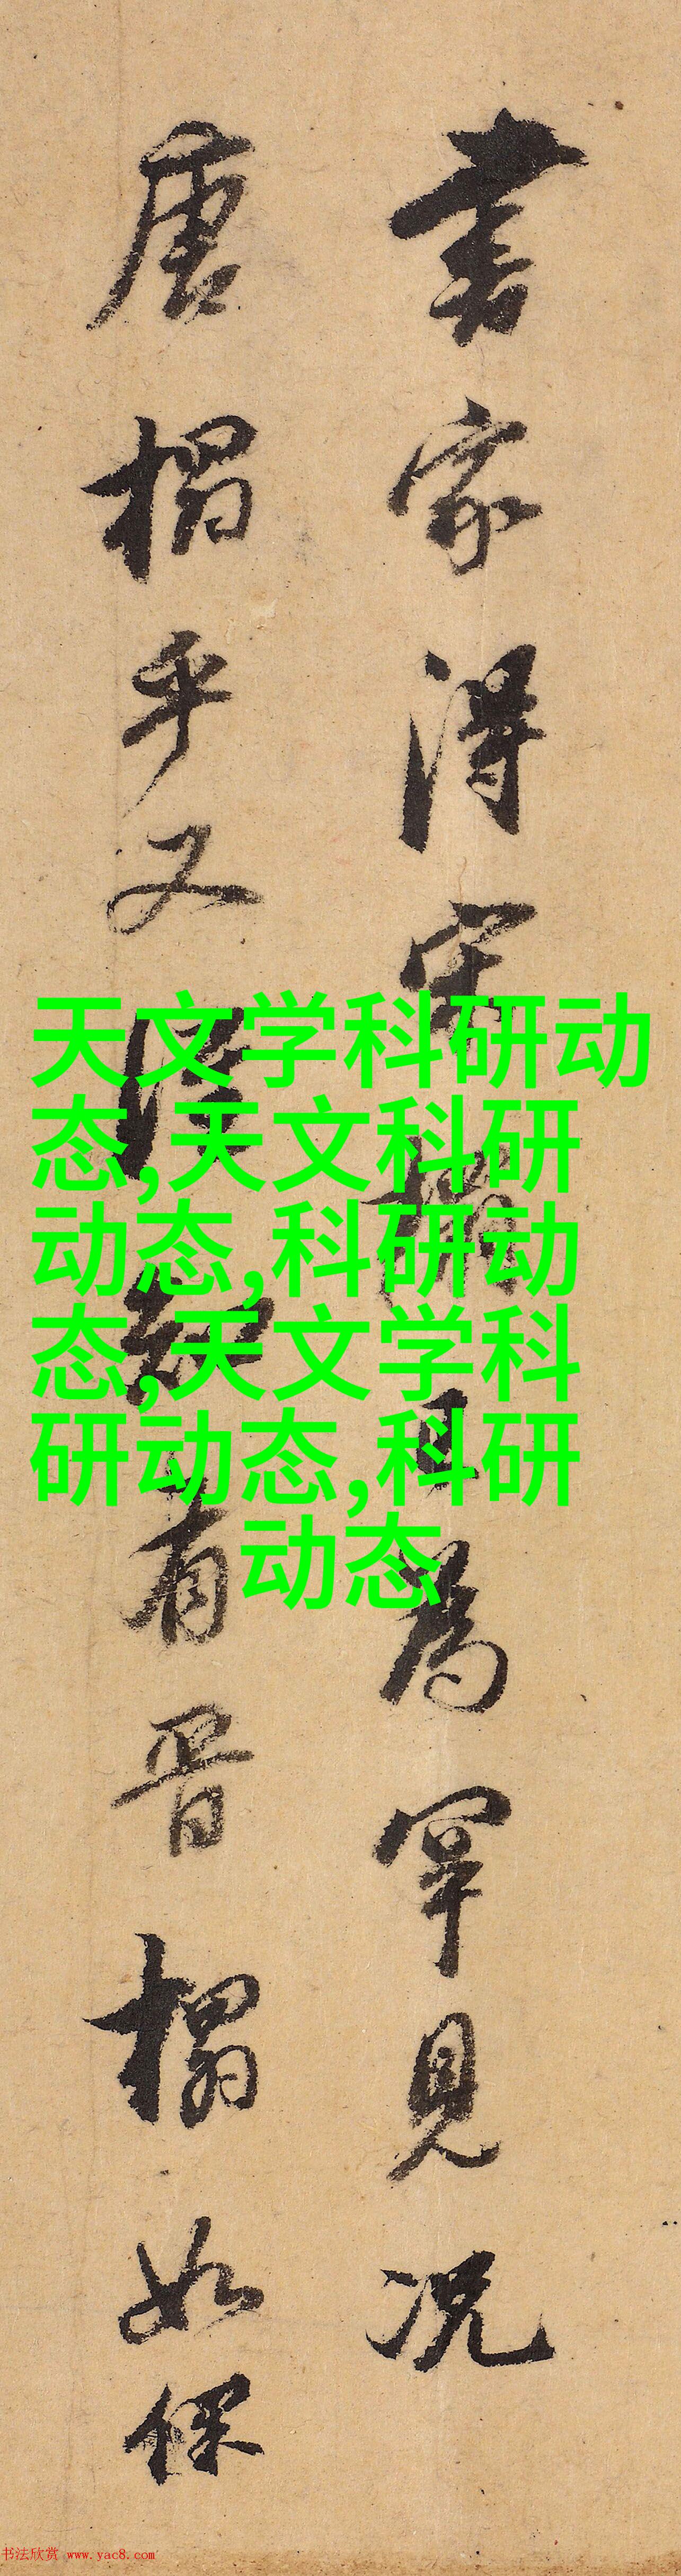 書家得宋搨為罕見況
唐搨乎又有晋搨如保
天文学科研动
态,天文科研
动态,科研动
态,天文学科
研动态,科研
动态
书法欣赏 www.yac8.com